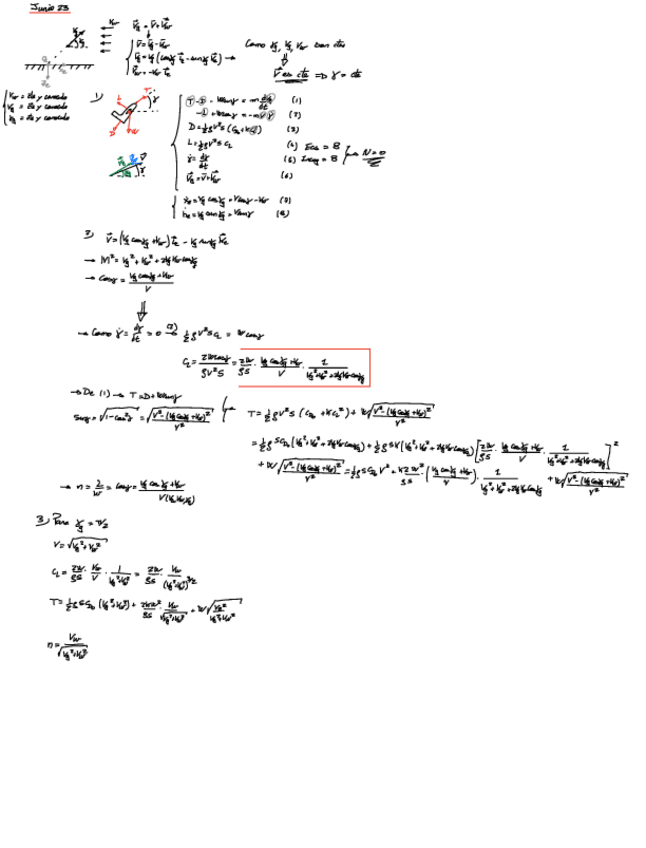 Junio 23
V⃗g = V⃗ + V⃗w
V⃗ = V⃗g - V⃗w
V⃗w = -Vw i⃗e
Como Vg, γg, Vw son ctes
⇓
V⃗ es cte ⇒ γ = cte
Vw = cte y conocido
Vg = cte y conocido
γg = cte y conocido
1)
T - D - W sinγ = m dV/dt (1)
-L + W cosγ = -mVγ̇ (2)
D = 1/2 ρV²S (CD0 + kCL²) (3)
L = 1/2 ρV²S CL (4)
Ecs = 8
Incog = 8
N = 0
γ̇ = dγ/dt (5)
V⃗g = V⃗ + V⃗w (6)
ẋe = Vg cosγg = V cosγ - Vw (7)
ḣe = Vg sinγg = V sinγ (8)
2) V⃗ = (Vg cosγg + Vw) i⃗e - Vg sinγg k⃗e
→ |V|² = Vg² + Vw² + 2VgVw cosγg
→ cosγ = (Vg cosγg + Vw)/V
⇓
→ Como γ̇ = dγ/dt = 0 →(2) 1/2 ρV²S CL = W cosγ
CL = 2W cosγ/(ρV²S) = 2W/(ρS) · (Vg cosγg + Vw)/V · 1/(Vg² + Vw² + 2VgVw cosγg)
→ De (1) → T = D + W sinγ
sinγ = √(1 - cos²γ) = √((V² - (Vg cosγg + Vw)²)/V²)
T = 1/2 ρV²S (CD0 + kCL²) + W√((V² - (Vg cosγg + Vw)²)/V²)
= 1/2 ρSCD0 (Vg² + Vw² + 2VgVw cosγg) + 1/2 ρSk (Vg² + Vw² + 2VgVw cosγg) [2W/(ρS) · (Vg cosγg + Vw)/V · 1/(Vg² + Vw² + 2VgVw cosγg)]²
+ W√((V² - (Vg cosγg + Vw)²)/V²) = 1/2 ρSCD0 V² + k2W²/(ρS) · ((Vg cosγg + Vw)/V) · 1/(Vg² + Vw² + 2VgVw cosγg) + W√((V² - (Vg cosγg + Vw)²)/V²)
→ n = L/W = cosγ = (Vg cosγg + Vw)/V(Vg, Vw, γg)
3) Para γg = π/2
V = √(Vg² + Vw²)
CL = 2W/(ρS) · Vw/V · 1/(Vg² + Vw²) = 2W/(ρS) · Vw/(Vg² + Vw²)^3/2
T = 1/2 ρSCD0 (Vg² + Vw²) + 2kW²/(ρS) · Vw/√(Vg² + Vw²) + W√(Vg²/(Vg² + Vw²))
n = Vw/√(Vg² + Vw²)